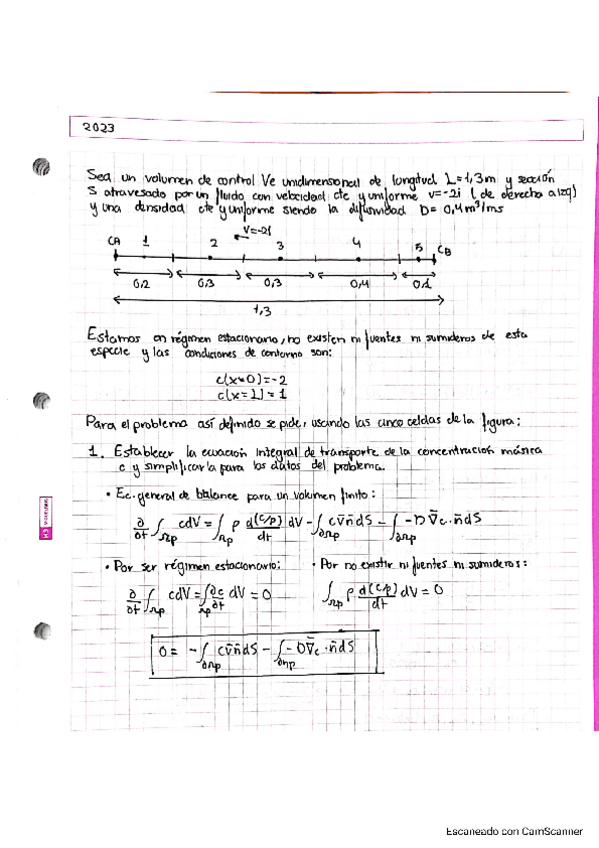 2023
Sea un volumen de control Ve unidimensional de longitud L=1,3m y sección
S atravesado por un fluido con velocidad cte y uniforme v=-2i (de derecha a izq)
y una densidad cte y uniforme siendo la difusividad D=0,4m³/ms
V=-2i
CA 1 2 3 4 5 CB
0,2 0,3 0,3 0,4 0,1
1,3
Estamos en régimen estacionario, no existen ni fuentes ni sumideros de esta
especie y las condiciones de contorno son:
c(x=0)=-2
c(x=L)=1
Para el problema así definido se pide, usando las cinco celdas de la figura:
1. Establecer la ecuación integral de transporte de la concentración másica
c y simplificarla para los datos del problema.
• Ec. general de balance para un volumen finito:
∂/∂t ∫Ωp cdV = ∫Ωp ρ d(c/ρ)/dt dV - ∫∂Ωp c v̄ n̄ dS - ∫∂Ωp -D ∇̄c · n̄ dS
• Por ser régimen estacionario: • Por no existir ni fuentes ni sumideros:
∂/∂t ∫Ωp cdV = ∫Ωp ∂c/∂t dV = 0 ∫Ωp ρ d(c/ρ)/dt dV = 0
0 = - ∫∂Ωp c v̄ n̄ dS - ∫∂Ωp -D ∇̄c · n̄ dS
Escaneado con CamScanner